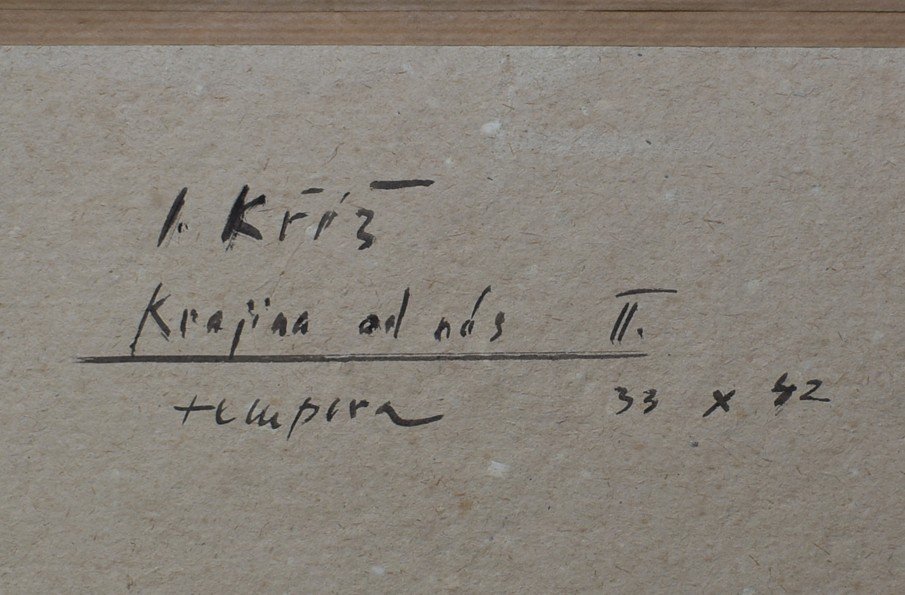 J. Kříž
Krajina od nás II.
tempera 33 x 42